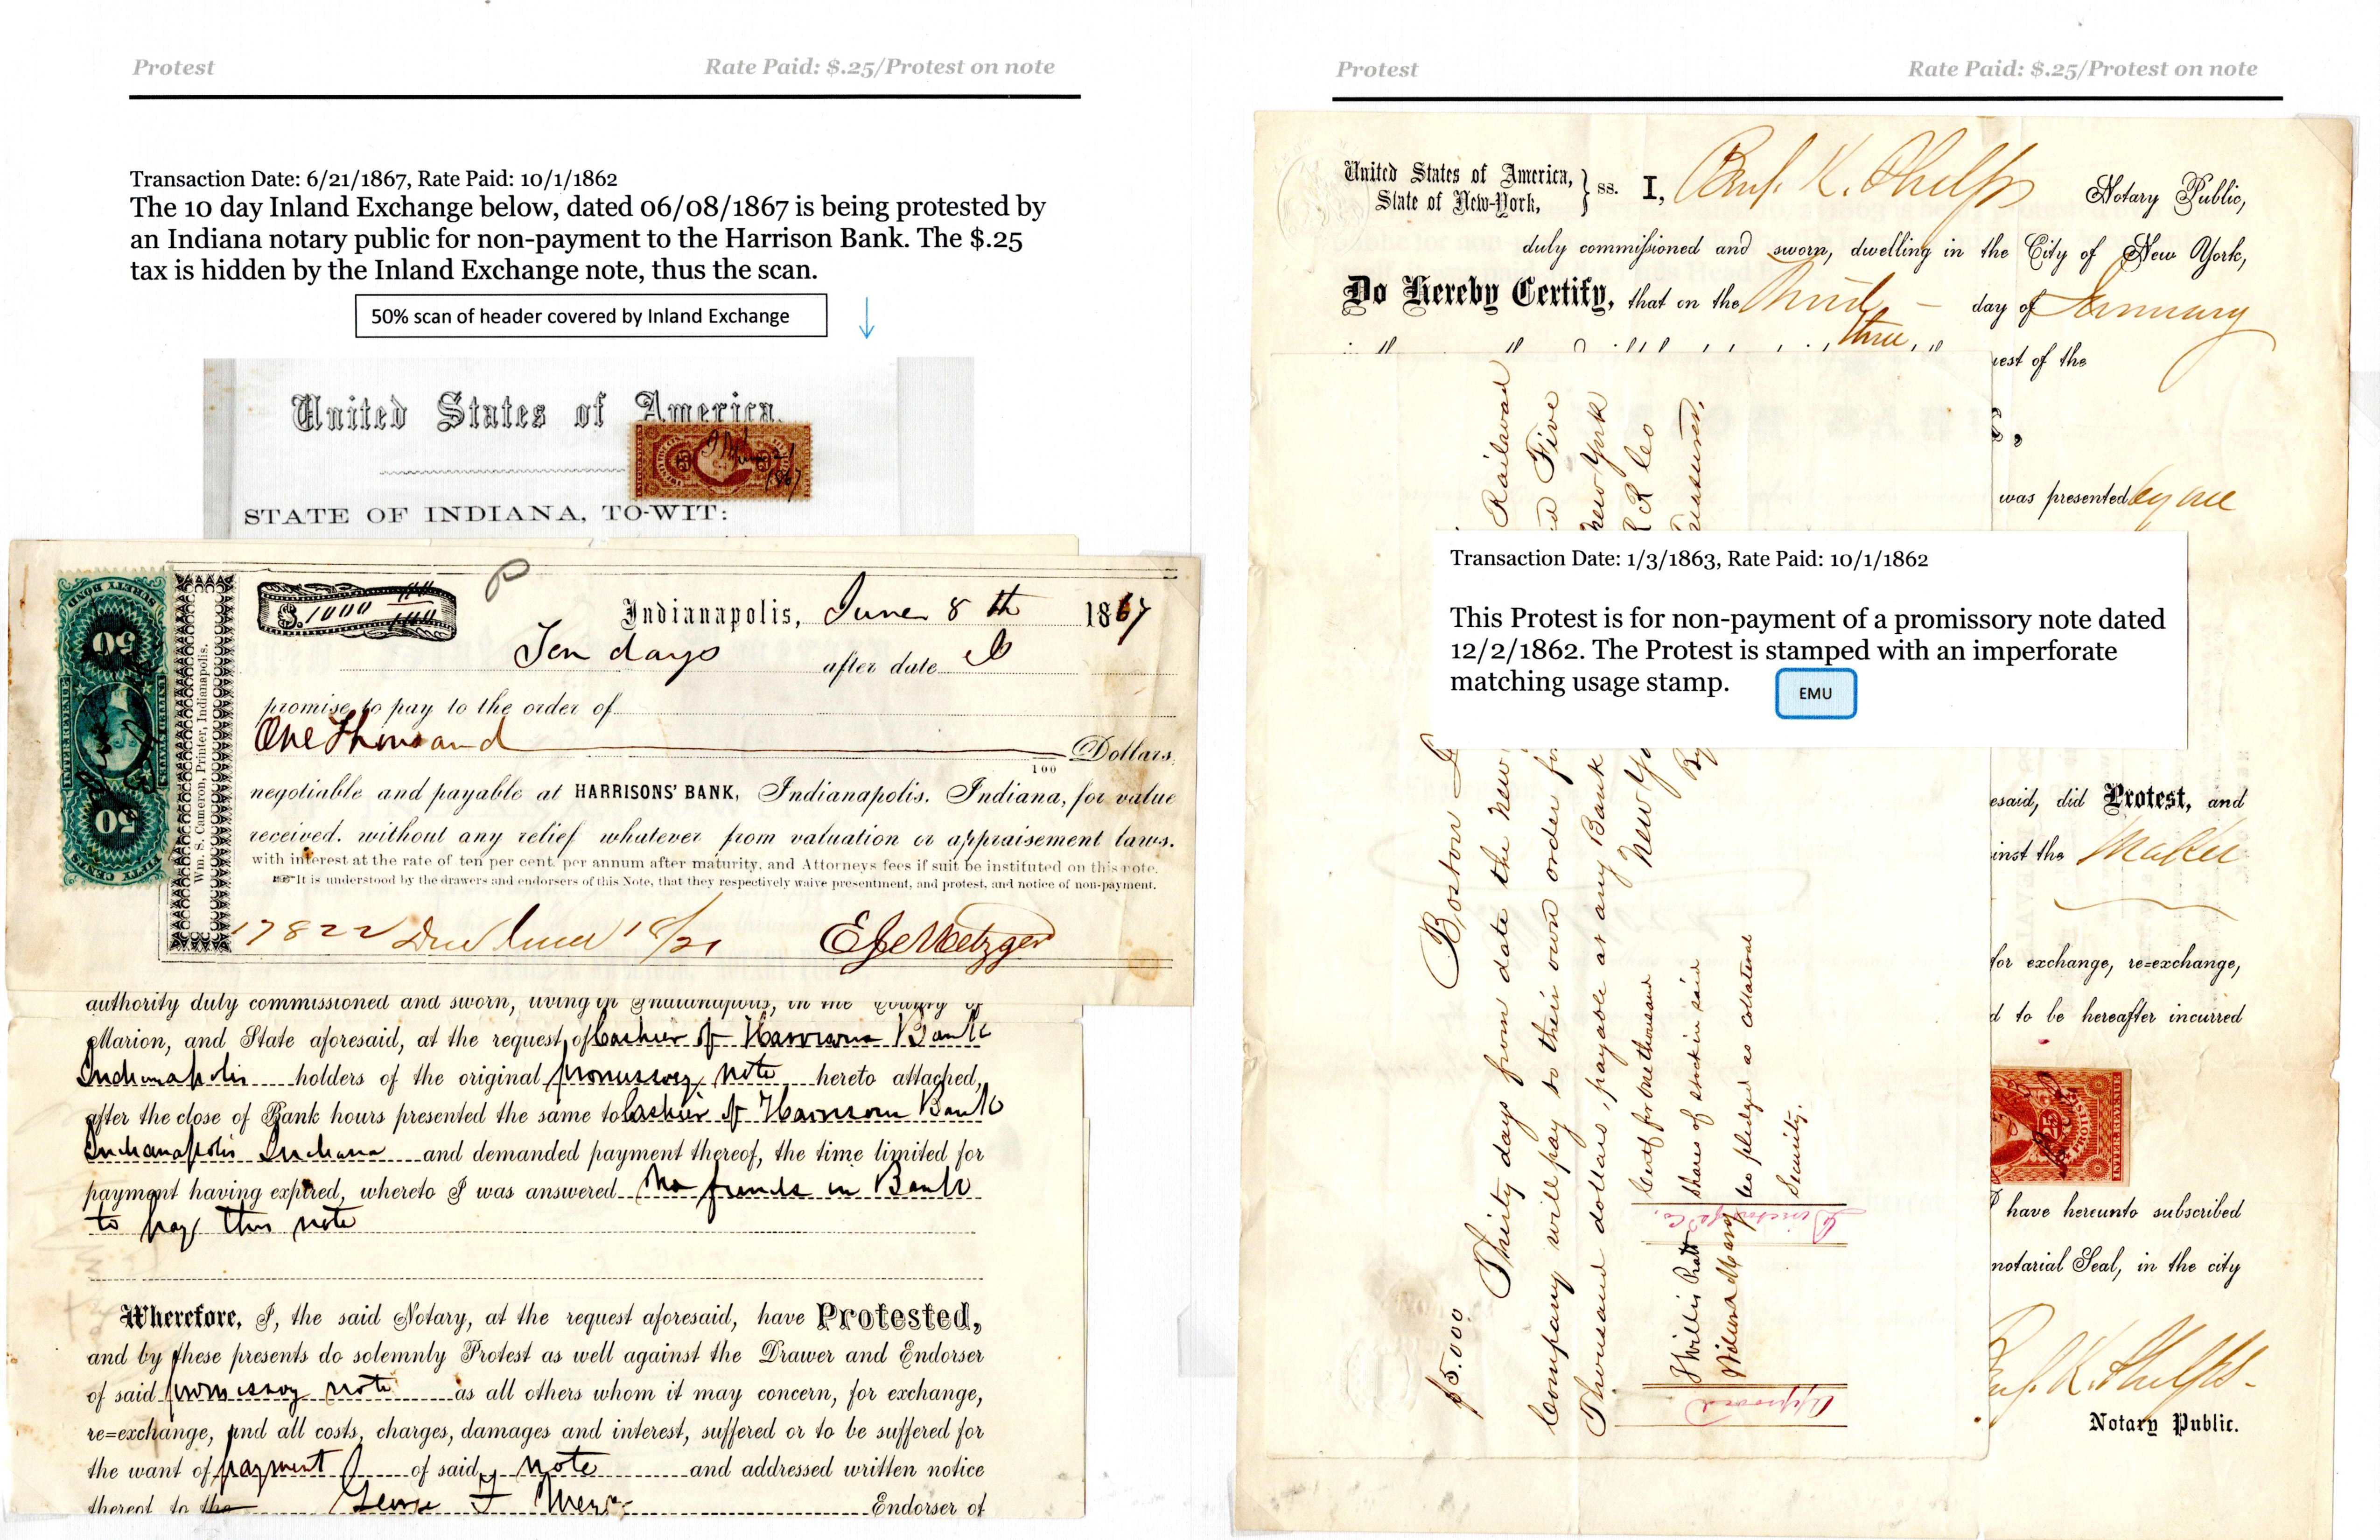 Protest Rate Paid: $.25/Protest on note
Transaction Date: 6/21/1867, Rate Paid: 10/1/1862
The 10 day Inland Exchange below, dated 06/08/1867 is being protested by
an Indiana notary public for non-payment to the Harrison Bank. The $.25
tax is hidden by the Inland Exchange note, thus the scan.
50% scan of header covered by Inland Exchange
United States of America.
1867
STATE OF INDIANA, TO-WIT:
SURETY BOND
50
INTER REVENUE
UNITED STATES
50
FIFTY CENTS
Wm. S. Cameron, Printer, Indianapolis.
$.1000
Indianapolis, June 8th 1867
Ten days after date I
promise to pay to the order of
One Thousand Dollars,
100
negotiable and payable at HARRISONS' BANK, Indianapolis, Indiana, for value
received, without any relief whatever from valuation or appraisement laws.
with interest at the rate of ten per cent. per annum after maturity, and Attorneys fees if suit be instituted on this note.
It is understood by the drawers and endorsers of this Note, that they respectively waive presentment, and protest, and notice of non-payment.
17822 Due June 18/21
authority duly commissioned and sworn, living in Indianapolis, in the County of
Marion, and State aforesaid, at the request of Cashier of Harrisons Bank
Indianapolis holders of the original promissory note hereto attached,
after the close of Bank hours presented the same to Cashier of Harrison Bank
Indianapolis Indiana and demanded payment thereof, the time limited for
payment having expired, whereto I was answered No funds in Bank
to pay this note
Wherefore, I, the said Notary, at the request aforesaid, have Protested,
and by these presents do solemnly Protest as well against the Drawer and Endorser
of said promissory note as all others whom it may concern, for exchange,
re=exchange, and all costs, charges, damages and interest, suffered or to be suffered for
the want of payment of said note and addressed written notice
thereof to the George F Endorser of
Protest Rate Paid: $.25/Protest on note
United States of America,
State of New-York, ss. I, Benj. K. Phelps Notary Public,
duly commissioned and sworn, dwelling in the City of New York,
Do Hereby Certify, that on the third day of January
three
uest of the
was presented by me
Transaction Date: 1/3/1863, Rate Paid: 10/1/1862
This Protest is for non-payment of a promissory note dated
12/2/1862. The Protest is stamped with an imperforate
matching usage stamp.
EMU
esaid, did Protest, and
inst the Maker
for exchange, re=exchange,
d to be hereafter incurred
25
PROTEST
INTER REVENUE
I have hereunto subscribed
notarial Seal, in the city
Benj. K. Phelps
Notary Public.
$5.000 Boston
Thirty days from date the New Railroad
Company will pay to their own order for Five
Thousand dollars, payable at any Bank New York
New Yo R R Co
By Treasurer.
Certf for One thousand
shares of stock in said
Co pledged as collateral
Security.
Approved
J Willis Pratt